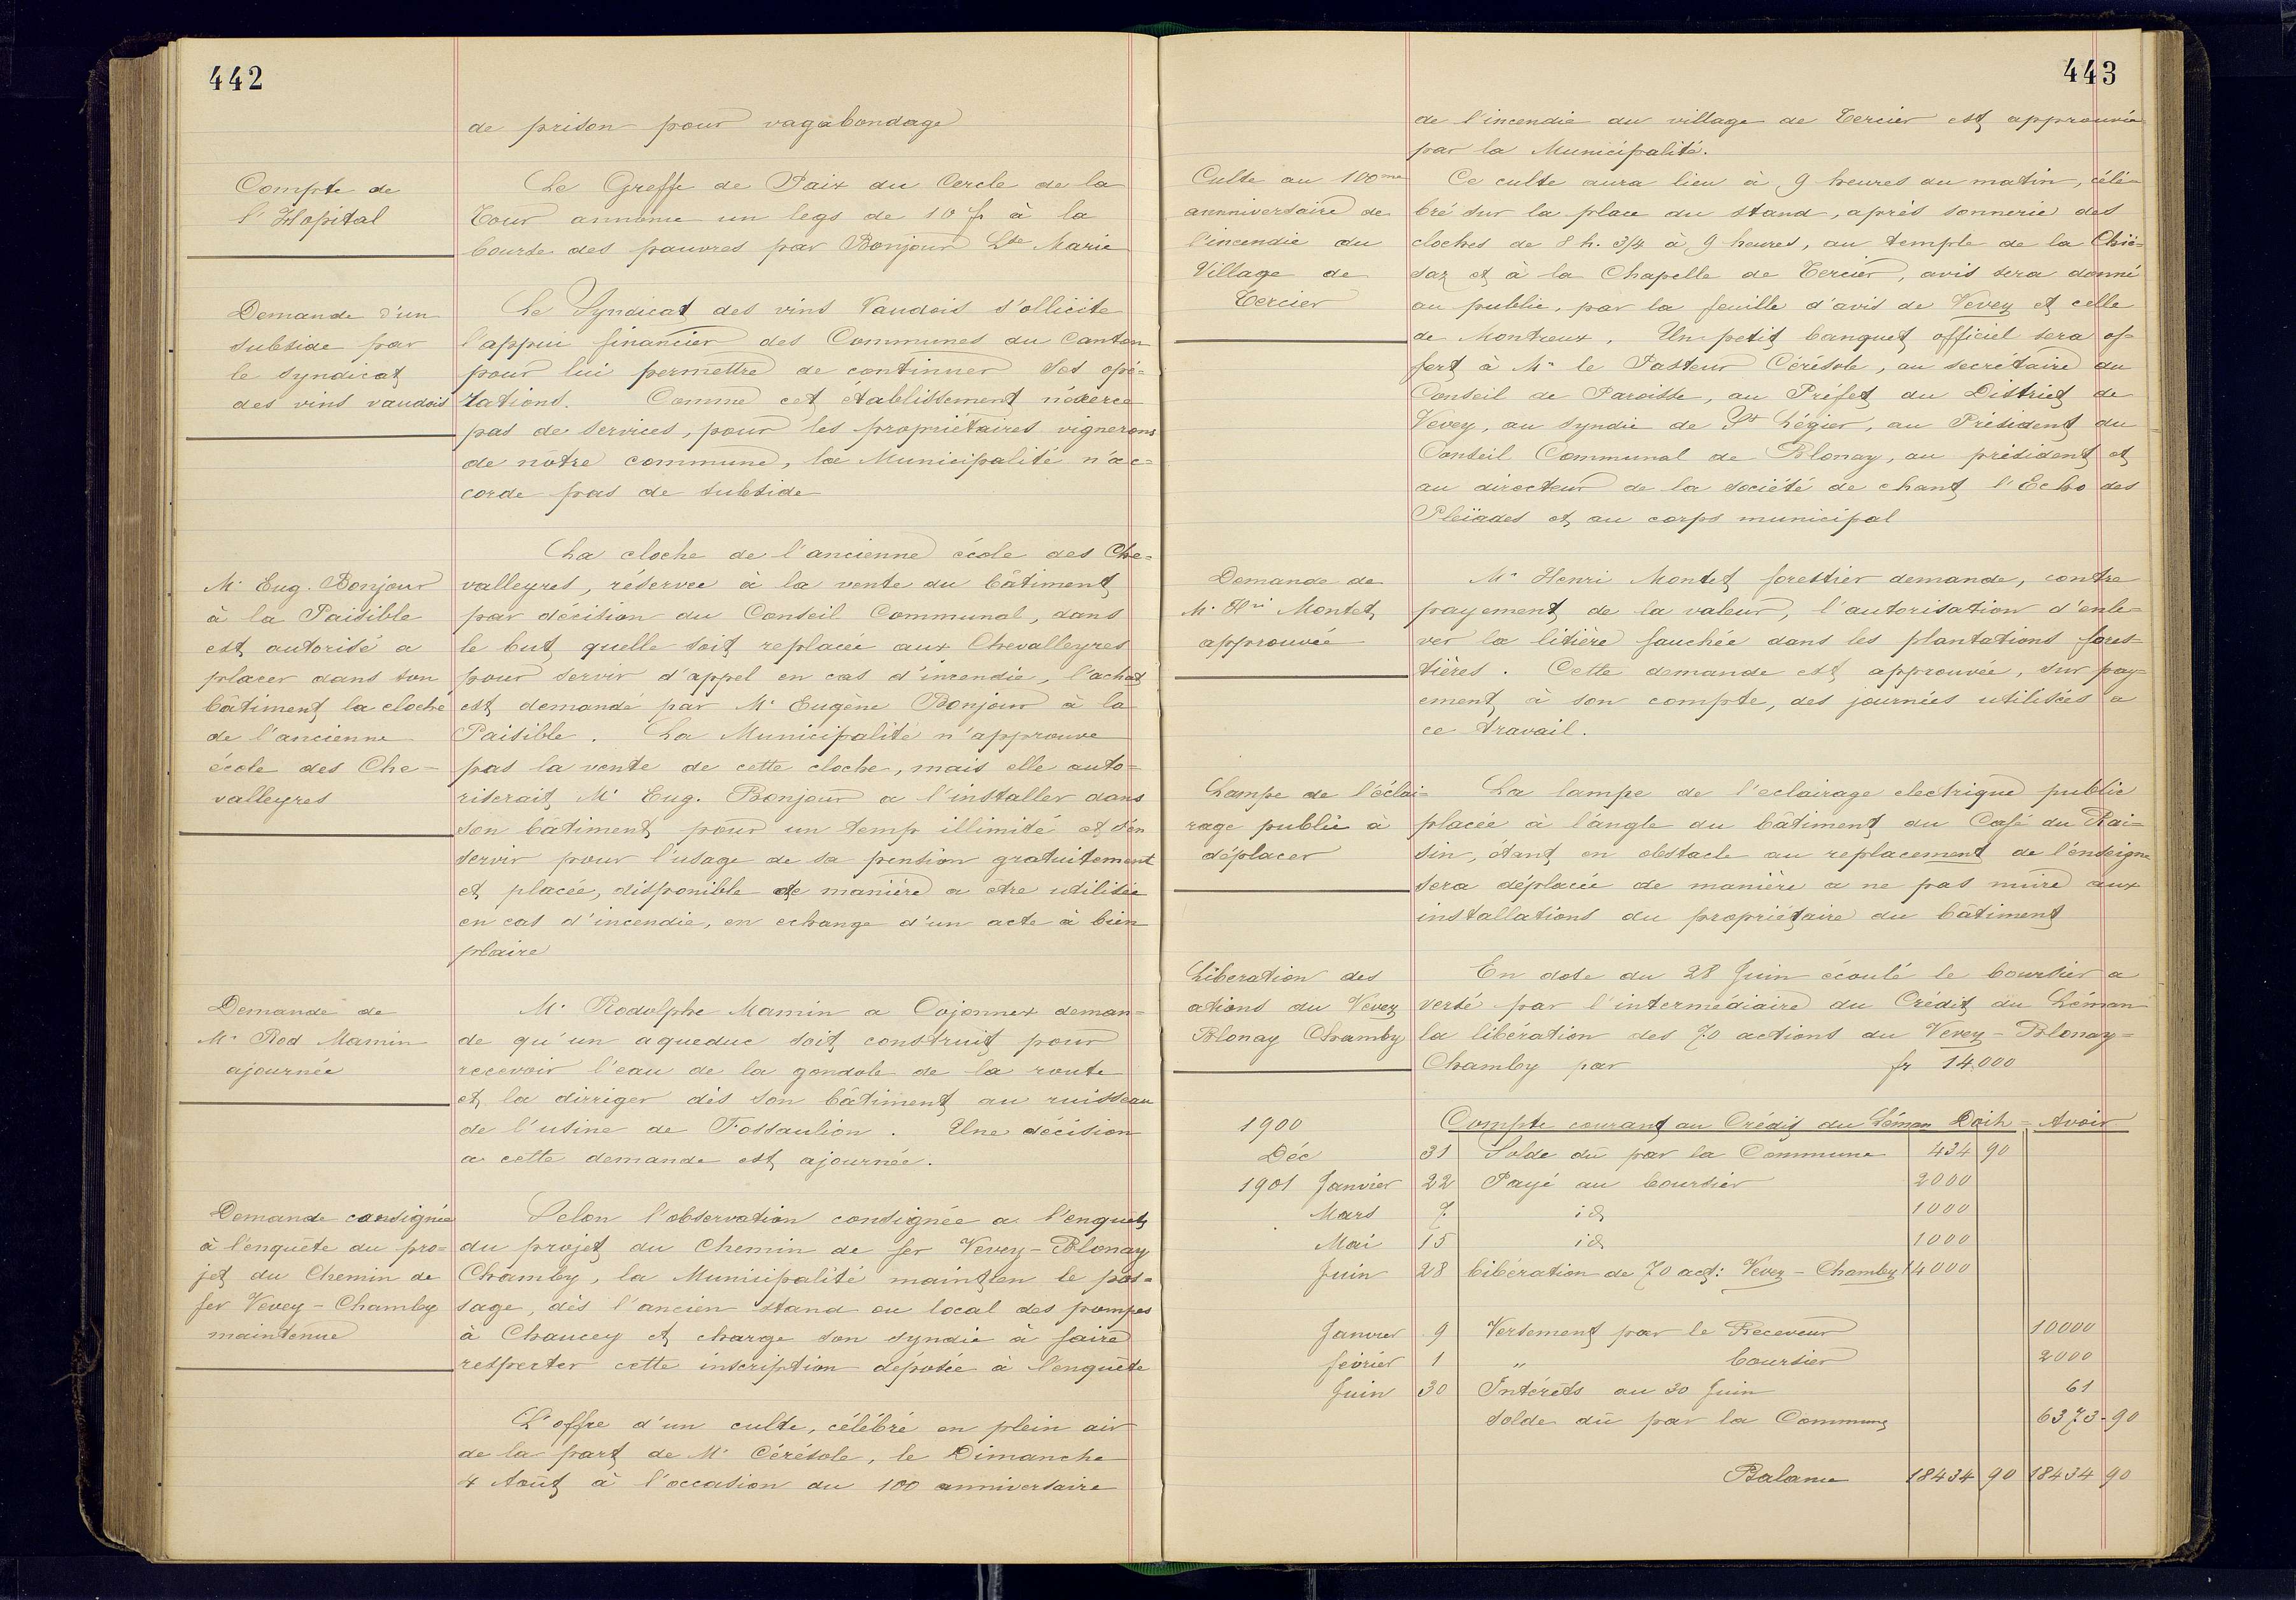 442
de prison pour vagabondage
Compte de
l'Hopital
Le Greffe de Paix du Cercle de la
Tour annonce un legs de 10 fr à la
bourse des pauvres par Bonjour Lse Marie
Demande d'un
subside par
le syndicat
des vins vaudois
Le Syndicat des vins Vaudois s'ollicite
l'appui financier des Communes du Canton
pour lui permettre de continuer ses opé-
rations. Comme cet établissement n'exerce
pas de services, pour les propriétaires vignerons
de nôtre commune, la Municipalité n'ac-
corde pas de subside
M. Eug. Bonjour
à la Paisible
est autorisé a
placer dans son
bâtiment la cloche
de l'ancienne
école des Che-
valleyres
La cloche de l'ancienne école des Che-
valleyres, réservée à la vente du bâtiment
par décision du Conseil Communal, dans
le but quelle soit replacée aux Chevalleyres
pour servir d'appel en cas d'incendie, l'achat
est demandé par M. Eugène Bonjour à la
Paisible. La Municipalité n'approuve
pas la vente de cette cloche, mais elle auto-
riserait M. Eug. Bonjour a l'installer dans
son bâtiment pour un temp illimité et s'en
servir pour l'usage de sa pension gratuitement
et placée, disponible de manière a être utilisée
en cas d'incendie, en echange d'un acte à bien
plaire
Demande de
M. Rod Mamin
ajournée
M. Rodolphe Mamin a Cojonnex deman-
de qu'un aqueduc soit construit pour
recevoir l'eau de la gondole de la route
et la dirriger dès son bâtiment au ruisseau
de l'usine de Fossaulion. Une décision
a cette demande est ajournée.
Demande consignée
à l'enquête du pro-
jet du Chemin de
fer Vevey - Chamby
maintenue
Selon l'observation consignée a l'enquête
du projet du Chemin de fer Vevey - Blonay
Chamby, la Municipalité maintien le pas-
sage, dès l'ancien stand ou local des pompes
à Chaucey et charge son syndic à faire
respecter cette inscription déposée à l'enquête
L'offre d'un culte, célébré en plein air
de la part de M. Cérésole, le Dimanche
4 Août à l'occasion du 100 anniversaire
443
de l'incendie du village de Tercier est approuvée
par la Municipalité.
Culte au 100me
annniversaire de
l'incendie du
Village de
Tercier
Ce culte aura lieu à 9 heures du matin, célé-
bré sur la place du stand, après sonnerie des
cloches de 8 h. 3/4 à 9 heures, au temple de la Chié-
saz et à la Chapelle de Tercier, avis sera donné
au public, par la feuille d'avis de Vevey et celle
de Montreux. Un petit banquet officiel sera of-
fert à M. le Pasteur Cérésole, au secrétaire du
Conseil de Paroisse, au Préfet du District de
Vevey, au syndic de St Légier, au Président du
Conseil Communal de Blonay, au président et
au directeur de la société de chant l'Echo des
Pleïades et au corps municipal
Demande de
M. Hri Montet
approuvée
M. Henri Montet forestier demande, contre
payement de la valeur, l'autorisation d'enle-
ver la litière fauchée dans les plantations fores-
tières. Cette demande est approuvée, sur pay-
ement à son compte, des journées utilisées a
ce travail.
Lampe de l'éclai-
rage public à
déplacer
La lampe de l'eclairage electrique public
placée à l'angle du bâtiment du Café du Rai-
sin, étant en obstacle au replacement de l'enseigne
sera déplacée de manière a ne pas nuire aux
installations du propriétaire du bâtiment
Liberation des
ations du Vevey
Blonay Chamby
En date du 28 Juin écoulé le boursier a
versé par l'intermédiaire du Crédit du Léman
la libération des 70 actions du Vevey - Blonay-
Chamby par fr 14.000
1900 Compte courant au Crédit du Léman Doih - Avoir
Déc 31 Solde dû par la Commune 434 90
1901 Janvier 22 Payé au boursier 2000
Mars 7 id 1000
Mai 15 id 1000
Juin 28 Libération de 70 act: Vevey - Chamby 14000
Janvier 9 Versement par le Receveur 10000
février 1 " boursier 2000
Juin 30 Intérêts au 30 Juin 61
solde dû par la Commune 6373-90
Balance 18434 90 18434 90